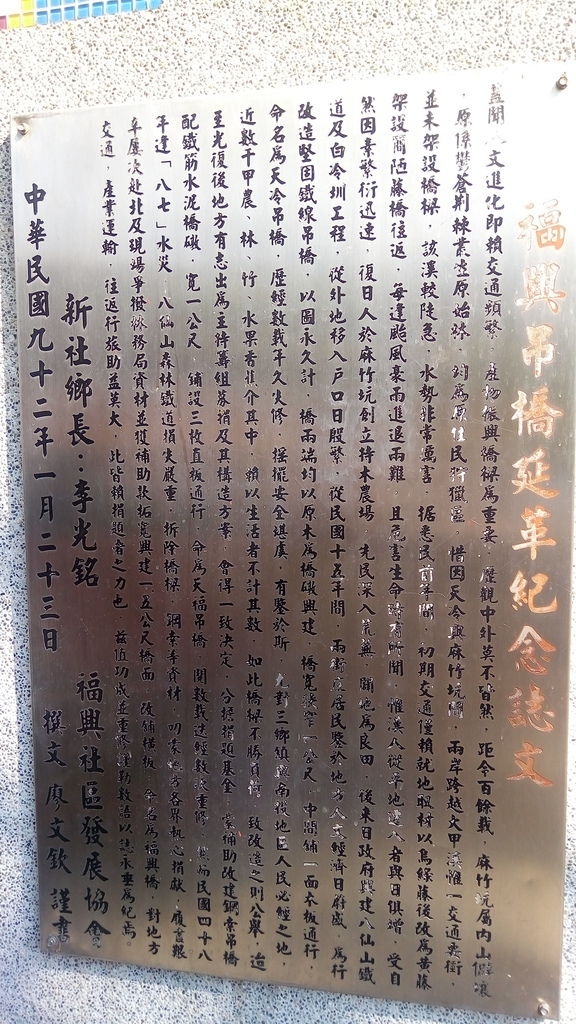 福興吊橋延革紀念誌文
蓋聞文進化即賴交通頻繁．產物振興橋樑為重要．歷觀中外莫不皆然．距今百餘載．麻竹坑屬內山僻壤
．原係鬱蒼荊棘叢原始．為原住民狩獵區．惜因天冷與麻竹坑．兩岸跨越大甲溪惟一交通要衝．
並未架設橋樑．該溪較陡急．水勢非常厲害．據悉民前年間．初期交通僅賴就地取材以烏綠藤後改為黃藤
架設簡陋藤橋往返．每逢颱風豪雨進退兩難．且危害生命時有所聞．惟漢人從平地遷入者與日俱增．受自
然因素繁衍迅速．復日人於麻竹坑創立待木農場．先民深入荒蕪．闢地為良田．後來日政府興建八仙山鐵
道及白冷圳工程．從外地移入戶口日殷繁．從民國十五年間．兩街庄居民鑒於地方人文經濟日府盛．為行
改造堅固鐵線吊橋．以圖永久計．橋兩端均以原木為橋磯興建．橋寬狹窄一公尺．中間舖一面木板通行．
命名為天冷吊橋．歷經數載年久失修．搖擺安全堪虞．有鑒於斯．三鄉鎮與南後地區人民必經之地
近數千甲農、林、竹、水果香蕉介其中．賴以生活者不計其數．如此橋樑不勝負荷．致改造之則公舉．迨
至光復後地方有志出為主持籌組募捐及其構造方案．會得一致決定．分擔捐題基金．蒙補助改建鋼索吊橋
配鐵筋水泥橋磯．寬一公尺．舖設三枚直板通行．命為天福吊橋．閱數載迭經數次重修．民國四十八
年逢「八七」水災．八仙山森林鐵道損失嚴重．拆除橋樑．鋼索等資材．叨蒙地方各界熱心捐獻．履言艱
辛屢次赴北及現場爭撥林務局資材並獲補助款拓寬興建一．五公尺橋面．改舖橫板．命名為福興橋．對地方
交通．產業運輸．往返行旅助益莫大．此皆賴捐題者之力也．茲值功成並重修謹勒數語以誌永垂為紀焉。
新社鄉長：李光銘　福興社區發展協會
中華民國九十二年一月二十三日　撰文 廖文欽 謹書